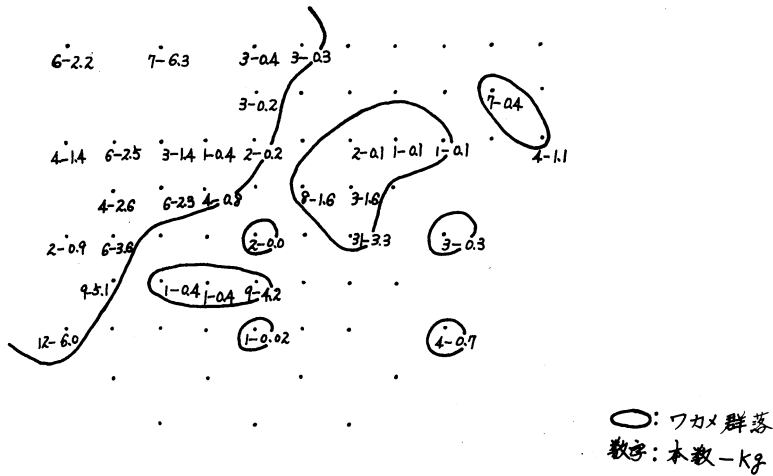 6-2.2 7-6.3 3-0.4 3-0.3
3-0.2 7-0.4
4-1.4 6-2.5 3-1.4 1-0.4 2-0.2 2-0.1 1-0.1 1-0.1 4-1.1
4-2.6 6-2.3 4-0.8 8-1.6 3-1.6
2-0.9 6-3.6 2-0.0 31-3.3 3-0.3
9-5.1 1-0.4 1-0.4 9-4.2
12-6.0 1-0.02 4-0.7
: ワカメ群落
数字: 本数-kg